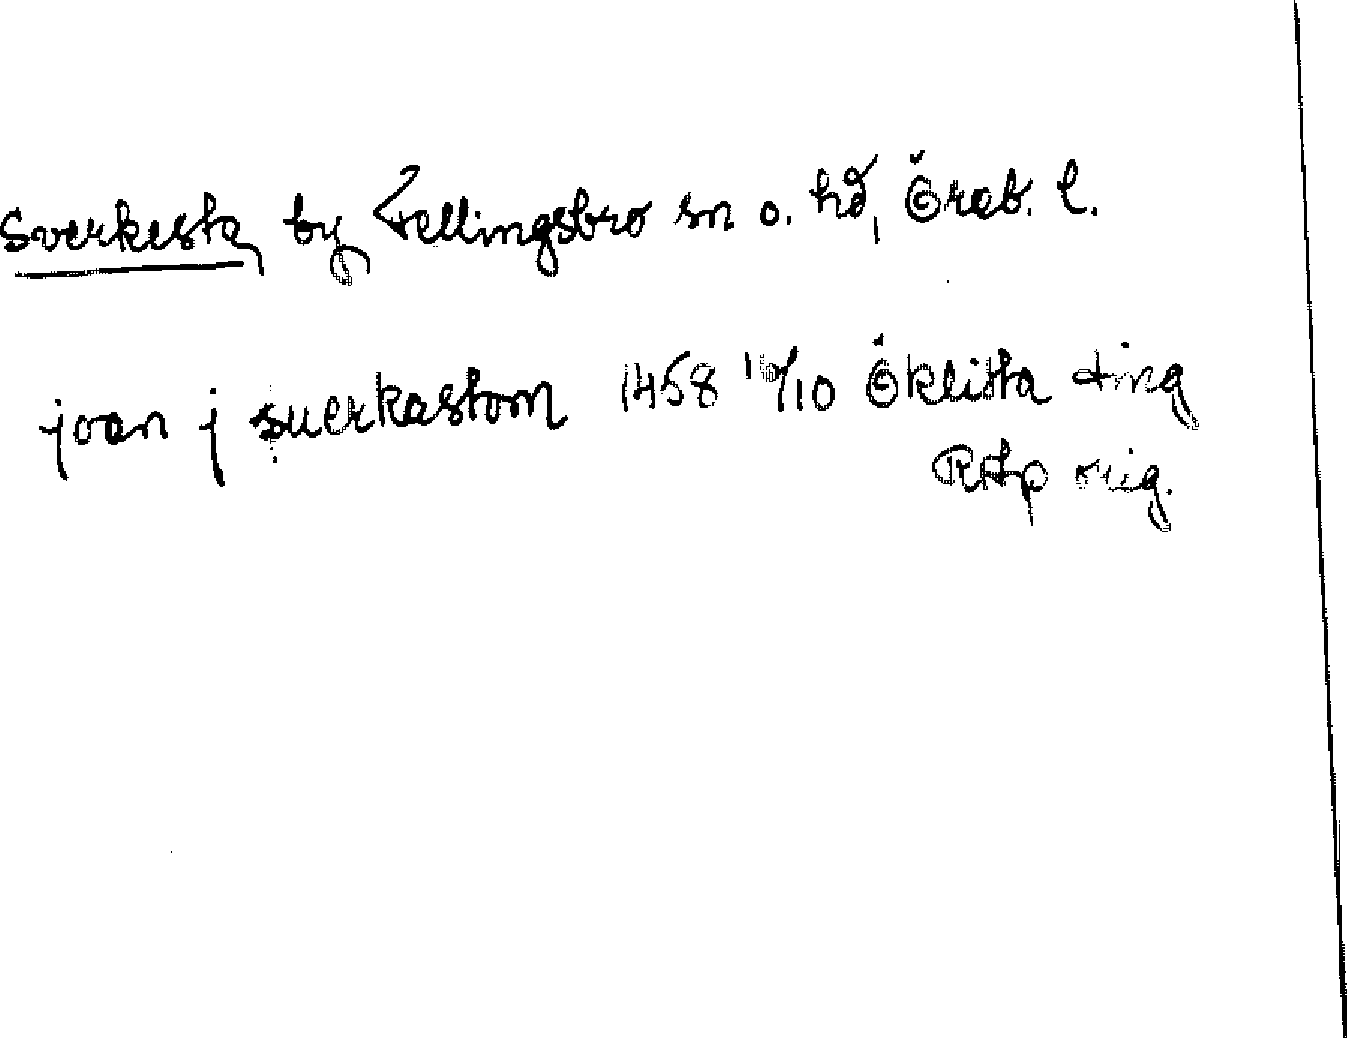 Sverkesta by Fellingsbro sn o. hd, Öreb. l.
joan j suerkastom 1458 10/10 Öklista ting
RAp orig.